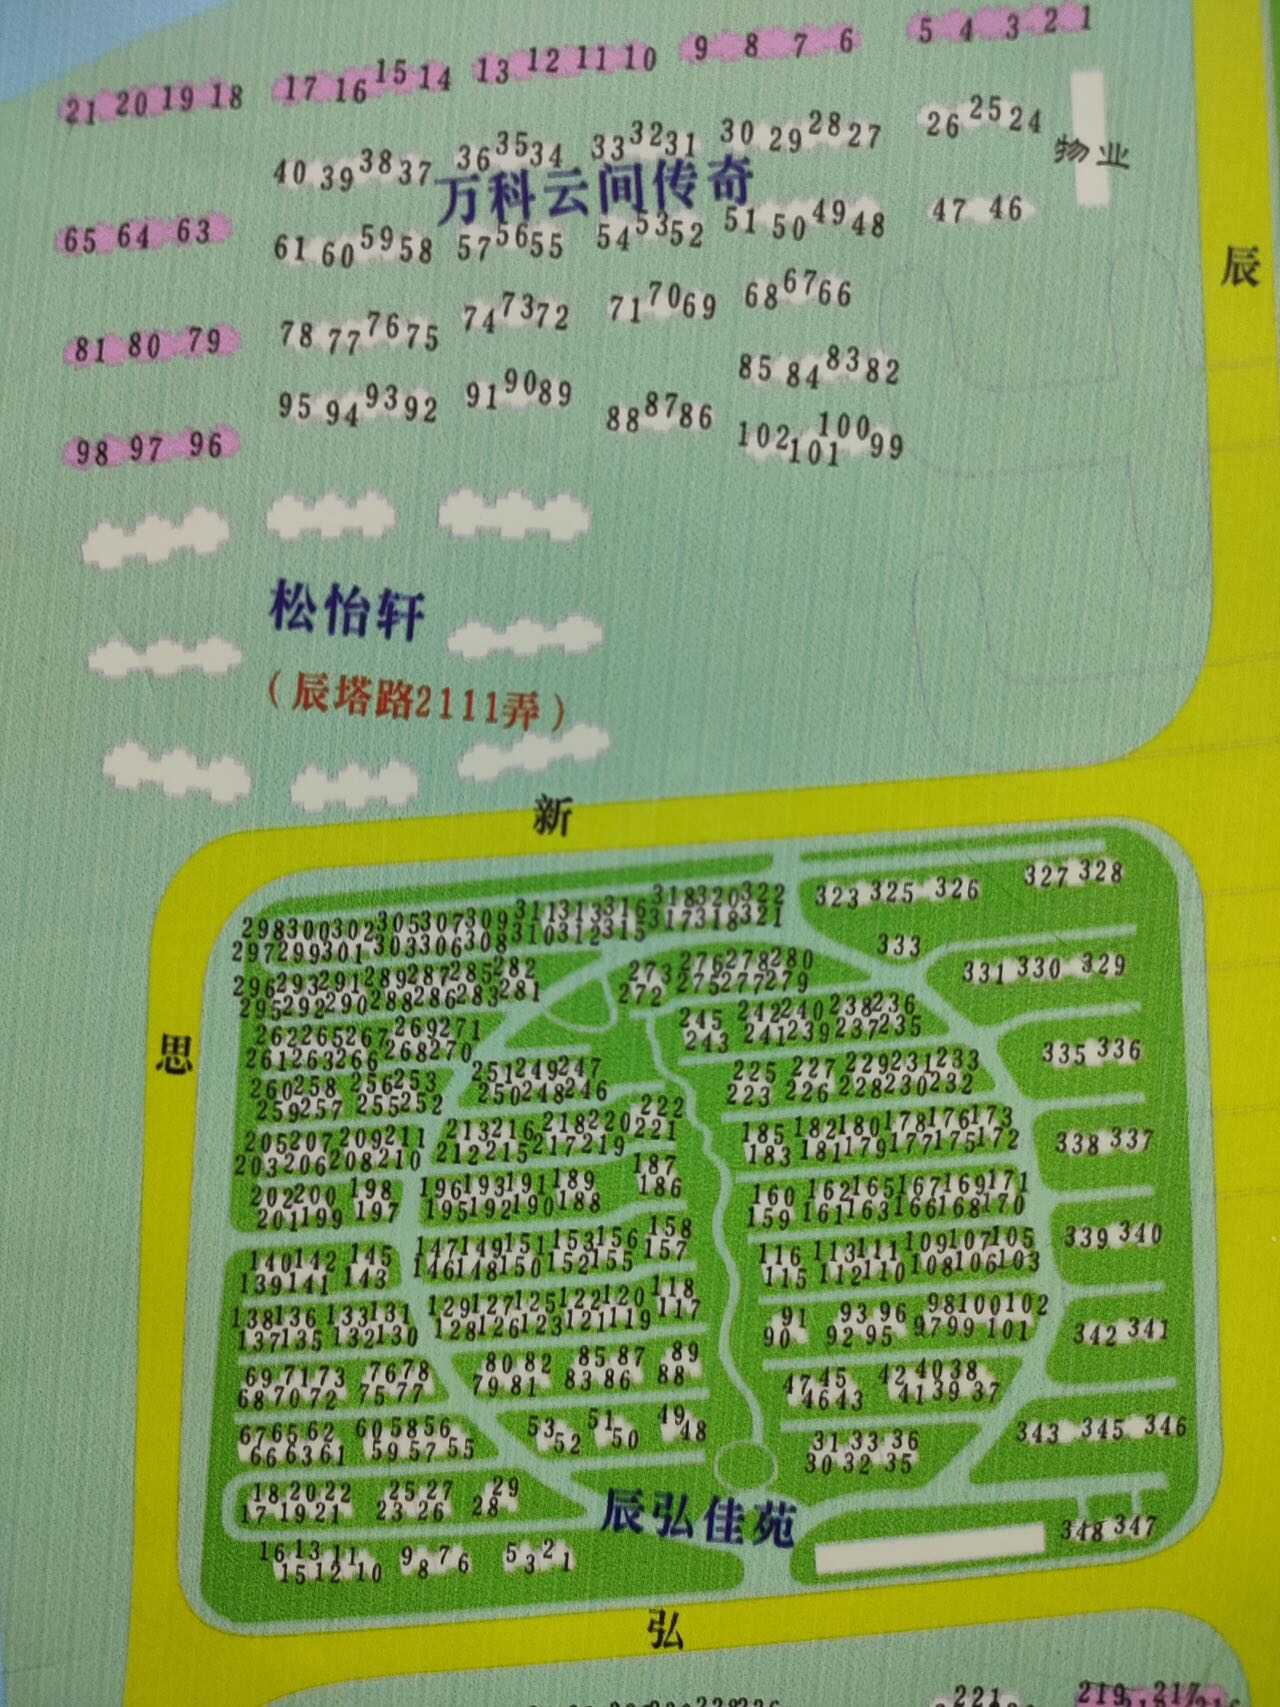 21 20 19 18 17 16 15 14 13 12 11 10 9 8 7 6 5 4 3 2 1
40 39 38 37 36 35 34 33 32 31 30 29 28 27 26 25 24
物业
万科云间传奇
65 64 63 61 60 59 58 57 56 55 54 53 52 51 50 49 48 47 46
辰
81 80 79 78 77 76 75 74 73 72 71 70 69 68 67 66
85 84 83 82
98 97 96 95 94 93 92 91 90 89 88 87 86
102 101 100 99
松怡轩
(辰塔路2111弄)
新
思
298 300 302 305 307 309 311 313 316 318 320 322 323 325 326 327 328
297 299 301 303 306 308 310 312 315 317 318 321
333
296 293 291 289 287 285 282 273 276 278 280 331 330 329
295 292 290 288 286 283 281 272 275 277 279
262 265 267 269 271 245 242 240 238 236
261 263 266 268 270 243 241 239 237 235
335 336
251 249 247 225 227 229 231 233
260 258 256 253 250 248 246 223 226 228 230 232
259 257 255 252
205 207 209 211 213 216 218 220 222 185 182 180 178 176 173
203 206 208 210 212 215 217 219 221 183 181 179 177 175 172
338 337
202 200 198 196 193 191 189 187 160 162 165 167 169 171
201 199 197 195 192 190 188 186 159 161 163 166 168 170
140 142 145 147 149 151 153 156 158 116 113 111 109 107 105
139 141 143 146 148 150 152 155 157 115 112 110 108 106 103
339 340
138 136 133 131 129 127 125 122 120 118 91 93 96 98 100 102
137 135 132 130 128 126 123 121 119 117 90 92 95 97 99 101
342 341
69 71 73 76 78 80 82 85 87 89 47 45 42 40 38
68 70 72 75 77 79 81 83 86 88 46 43 41 39 37
67 65 62 60 58 56 53 51 49 31 33 36
66 63 61 59 57 55 52 50 48 30 32 35
343 345 346
18 20 22 25 27 29
17 19 21 23 26 28
辰弘佳苑
348 347
16 13 11 9 7 6 5 2
15 12 10 8 3 1
弘
221 219 217